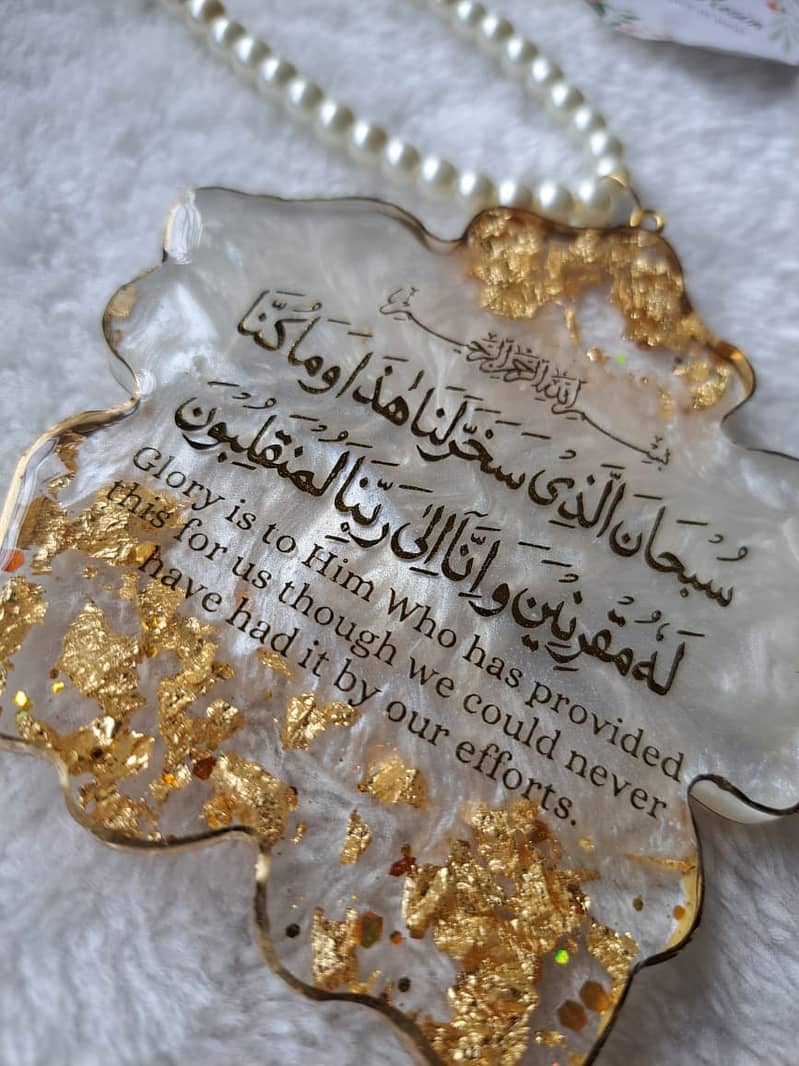 بسم الله الرحمن الرحيم
سُبْحَانَ الَّذِى سَخَّرَ لَنَا هٰذَا وَمَا كُنَّا
لَهُ مُقْرِنِيْنَ وَاِنَّآ اِلٰى رَبِّنَا لَمُنْقَلِبُوْنَ
Glory is to Him Who has provided
this for us though we could never
have had it by our efforts.